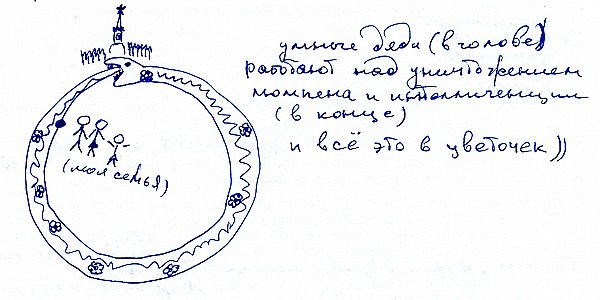 умные дяди (в голове)
работают над уничтожением
люмпена и интеллигенции
(в конце)
и всё это в цветочек))
(моя семья)